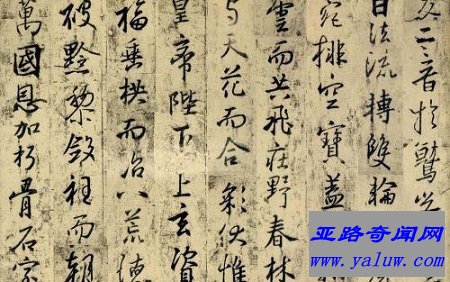 二音於鷲
日法流轉雙輪
苑排空寶蓋
雲而共飛莊野春林
與天花而合彩伏惟
皇帝陛下上玄資
福垂拱而治八荒德
被黔黎斂衽而朝
萬國恩加朽骨石室
亚路奇闻网
www.yaluw.com